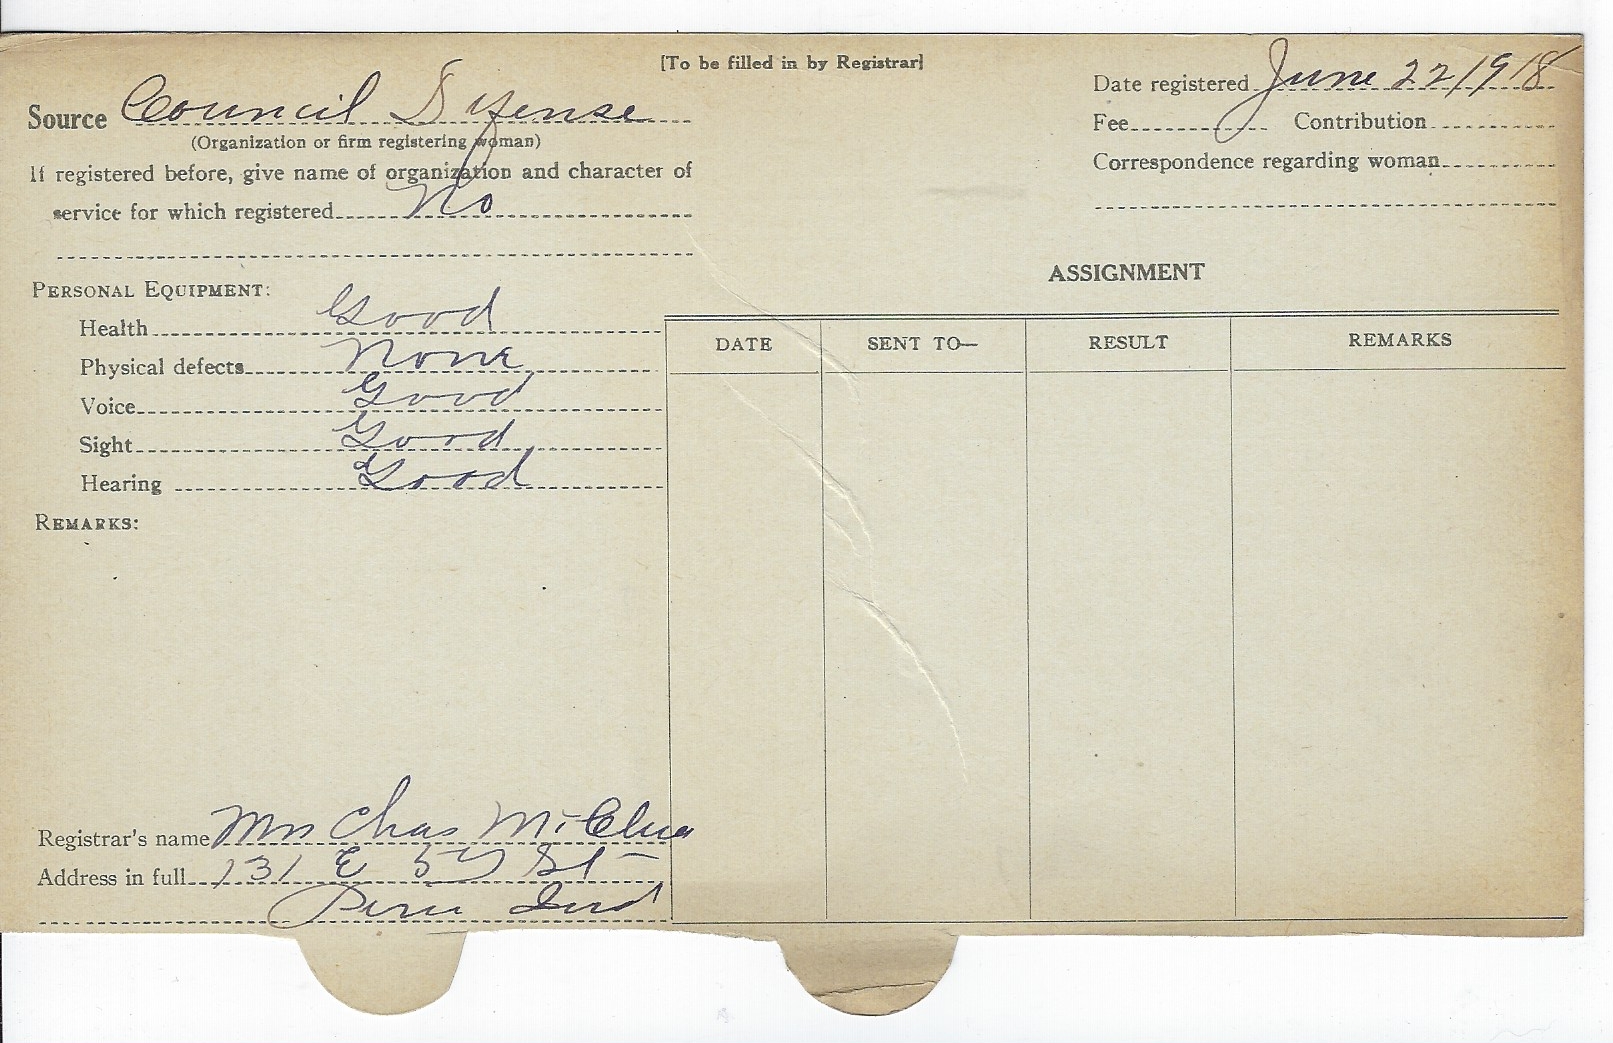 [To be filled in by Registrar]
Source Council Defense
(Organization or firm registering woman)
If registered before, give name of organization and character of
service for which registered No
Date registered June 22 1918
Fee Contribution
Correspondence regarding woman
PERSONAL EQUIPMENT:
Health Good
Physical defects None
Voice Good
Sight Good
Hearing Good
REMARKS:
ASSIGNMENT
DATE SENT TO— RESULT REMARKS
Registrar's name Mrs Chas
Address in full 131 E 5 St
Peru Ind